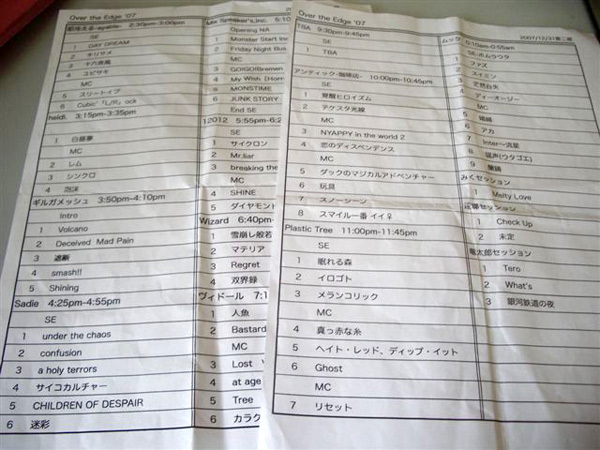 Over the Edge '07
2:30pm-3:00pm
SE
1 DAY DREAM
2 キリサメ
3 十六夜風
4 ユビサキ
MC
5 スリートイプ
6 Cubic「L/R」ock
heidi. 3:15pm-3:35pm
1 白昼夢
MC
2 レム
3 シンクロ
4 泡沫
ギルガメッシュ 3:50pm-4:10pm
Intro
1 Volcano
2 Deceived Mad Pain
3 遮断
4 smash!!
5 Shining
Sadie 4:25pm-4:55pm
SE
1 under the chaos
2 confusion
3 a holy terrors
4 サイコカルチャー
5 CHILDREN OF DESPAIR
6 迷彩
Mix Speaker's,Inc. 5:10
Opening NA
1 Monster Start Inc
2 Friday Night Bus
MC
3 GO!GO!Bremen
4 My Wish (Horr
5 MONSTIME
6 JUNK STORY
End SE
12012 5:55pm-6:2
SE
1 サイクロン
2 Mr.liar
3 breaking the
MC
4 SHINE
5 ダイヤモンド
Wizard 6:40pm-
1 雪崩し般若
2 マテリア
3 Regret
4 双界録
ヴィドール 7:1
1 人魚
2 Bastard
MC
3 Lost
4 at age
5 Tree
6 カラク
Over the Edge '07
TBA 9:30pm-9:45pm
SE
1 TBA
アンティック-珈琲店- 10:00pm-10:45pm
SE
1 覚醒ヒロイズム
2 テケスタ光線
MC
3 NYAPPY in the world 2
4 恋のディスペンデンス
MC
5 ダックのマジカルアドベンチャー
6 玩具
7 スノーシーン
8 スマイル一番 イイ♀
Plastic Tree 11:00pm-11:45pm
SE
1 眠れる森
2 イロゴト
3 メランコリック
MC
4 真っ赤な糸
5 ヘイト・レッド、ディップ・イット
6 Ghost
MC
7 リセット
2007/12/31第二稿
ムック 0:10am-0:55am
SE-ホムラウタ
1 ファズ
2 スイミン
3 茫然自失
4 ディーオージー
MC
5 娼婦
6 アカ
7 Inter〜流星
8 謡声(ウタゴエ)
9 蘭鋳
みくセッション
1 Melty Love
セッション
1 Check Up
2 未定
竜太郎セッション
1 Tero
2 What's
3 銀河鉄道の夜